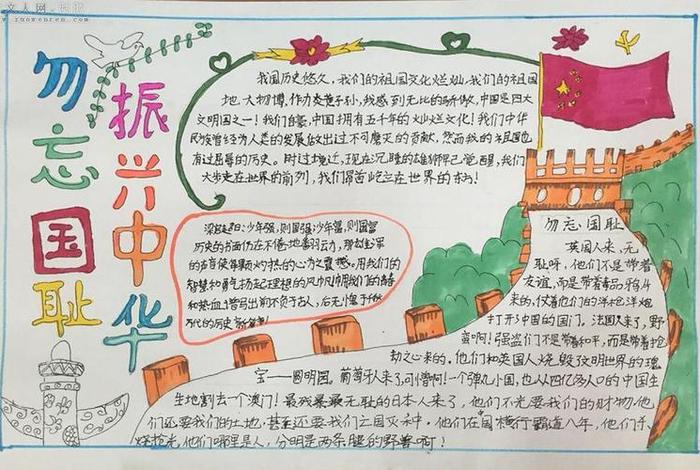 勿忘国耻
振兴中华
我国历史悠久，我们的祖国文化烂灿，我们的祖国
地大物博，作为炎黄子孙，我感到无比的骄傲，中国是四大
文明国之一！我们自豪，中国拥有五千年的火山烂文化！我们中华
民族曾经为人类的发展做出过不可磨灭的贡献，然而我的祖国也
有过屈辱的历史。时过境迁，现在沉睡的雄狮早已觉醒，我们
大步走在世界的前列，我们屹立在世界的东方！
梁启超曰：少年强，则国强；少年智，则国智
历史的书面仍在不倦地翻
的声音使
智慧和勇气扬起理想的风帆用我们的青春
和热血谱写出前不负于古人，后无愧于
代的历史新篇章！
勿忘国耻
英国人来，无
耻呀，他们不是带着
友谊，而是带着毒品鸦片
来的，仗着他们的洋枪洋炮
打开3中国的国门。法国人来了，野
蛮啊！强盗们不是带着和平，而是带着抢
劫之心来的，他们和英国人烧毁文明世界的瑰
宝——圆明园。葡萄牙人来了，可惜啊！一个弹丸小国，也从四亿多人口的中国生
生地割去一个澳门！最残暴最无耻的日本人来了，他们不光要我们的财物，他
们还要我们的土地，甚至还要我们亡国灭种。他们在中国横行霸道八年，他们杀
烧抢光，他们哪里是人，分明是两条腿的野兽啊！